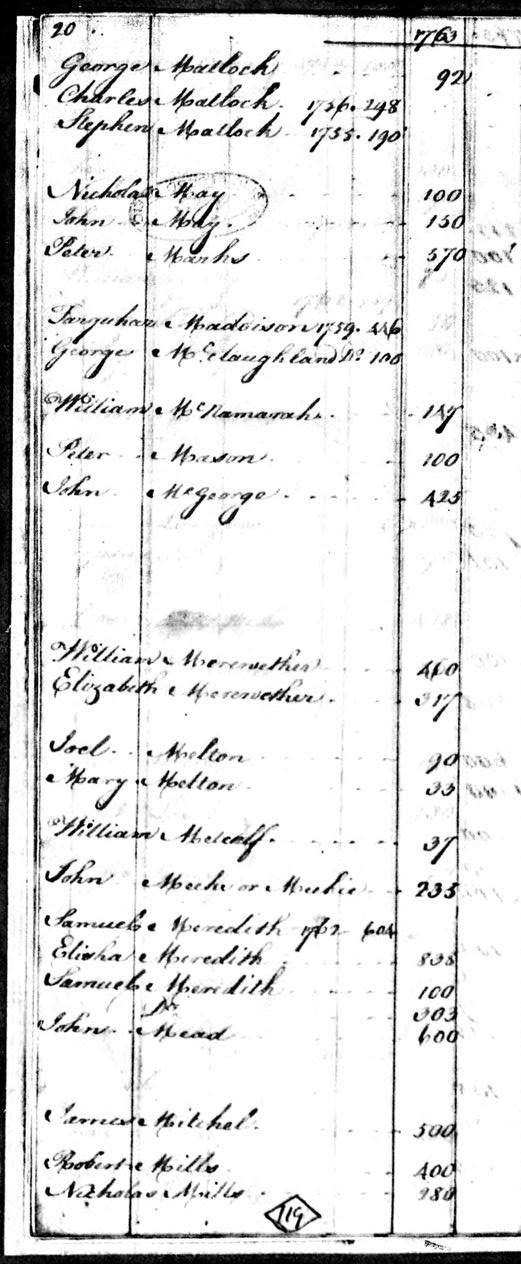 20 1763
George Matlock 92
Charles Matlock 1756. 248
Stephen Matlock 1755. 190
Nicholas May 100
John May 150
Peter Marks 570
Farquhar Maddison 1759. 446
George McClaughland Do. 100
William McNamarah 147
Peter Mason 100
John McGeorge 425
William Merewether 460
Elizabeth Merewether 317
Joel Melton 90
Mary Melton 33
William Metcalf 37
John Meek or Meekie 235
Samuel Meredith 1762 604
Elisha Meredith 838
Samuel Meredith 100
Do. 303
John Mead 600
James Mitchel 500
Robert Mills 400
Nicholas Mills 280
119